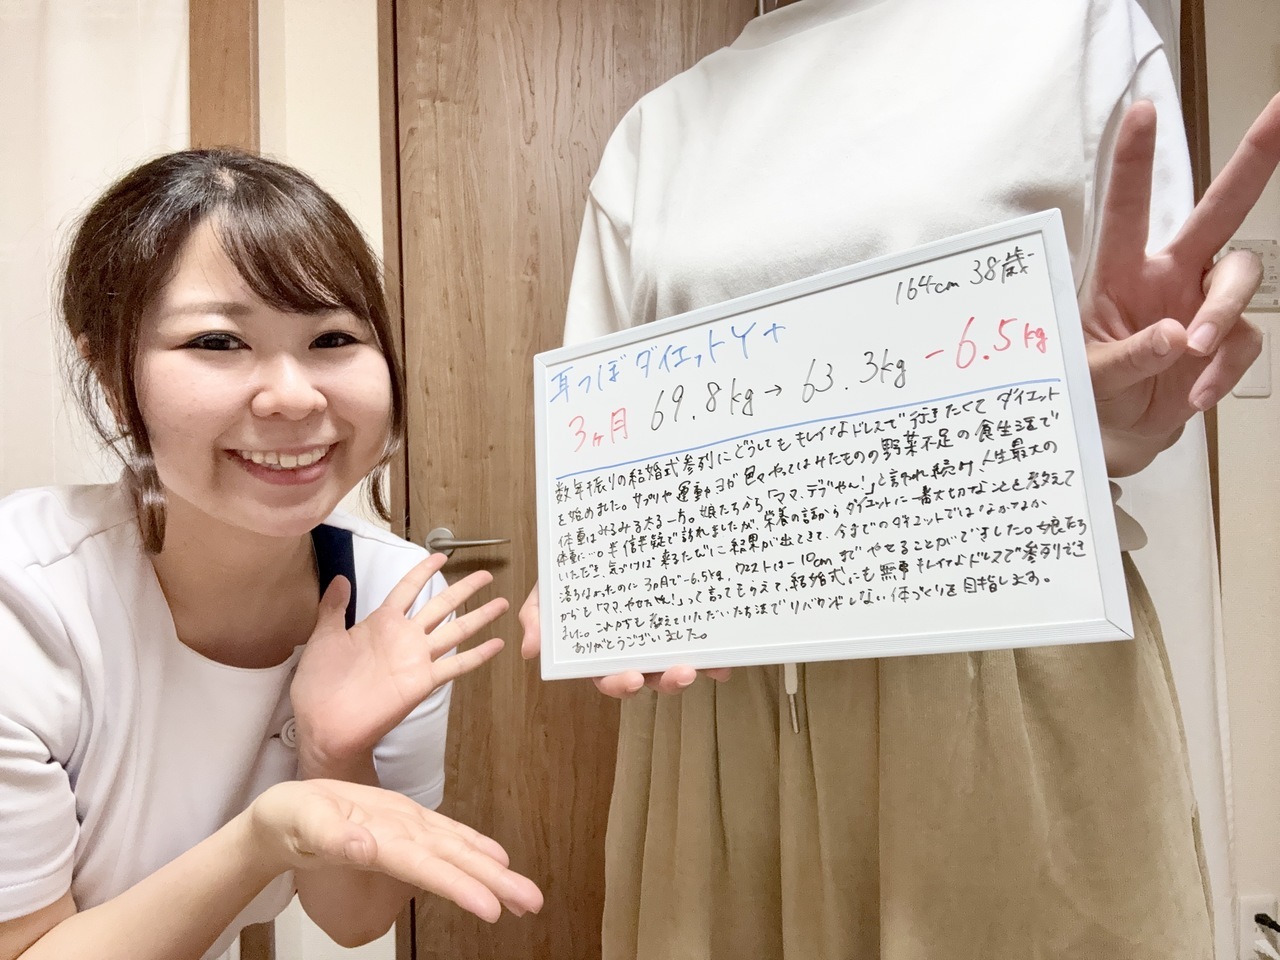 164cm 38歳
耳つぼダイエットY+
3ヶ月 69.8kg→63.3kg -6.5kg
数年振りの結婚式参列にどうしてもキレイなドレスで行きたくてダイエット
を始めました。サプリや運動、ヨガ色々やってはみたものの野菜不足の食生活で
体重はみるみる太る一方。娘たちから「ママ、デブやん!」と言われ続け、人生最大の
体重に…。半信半疑で訪れましたが、栄養の話からダイエットに一番大切なことを教えて
いただき、気づけば来るたびに結果が出てきて、今までのダイエットではなかなか
落ちなかったのに3ヵ月で-6.5kg、ウエストは-10cmまでやせることができました。娘たち
からも「ママ、やせたやん!」って言ってもらえて、結婚式にも無事キレイなドレスで参列でき
ました。これからも教えていただいた方法でリバウンドしない体づくりを目指します。
ありがとうございました。